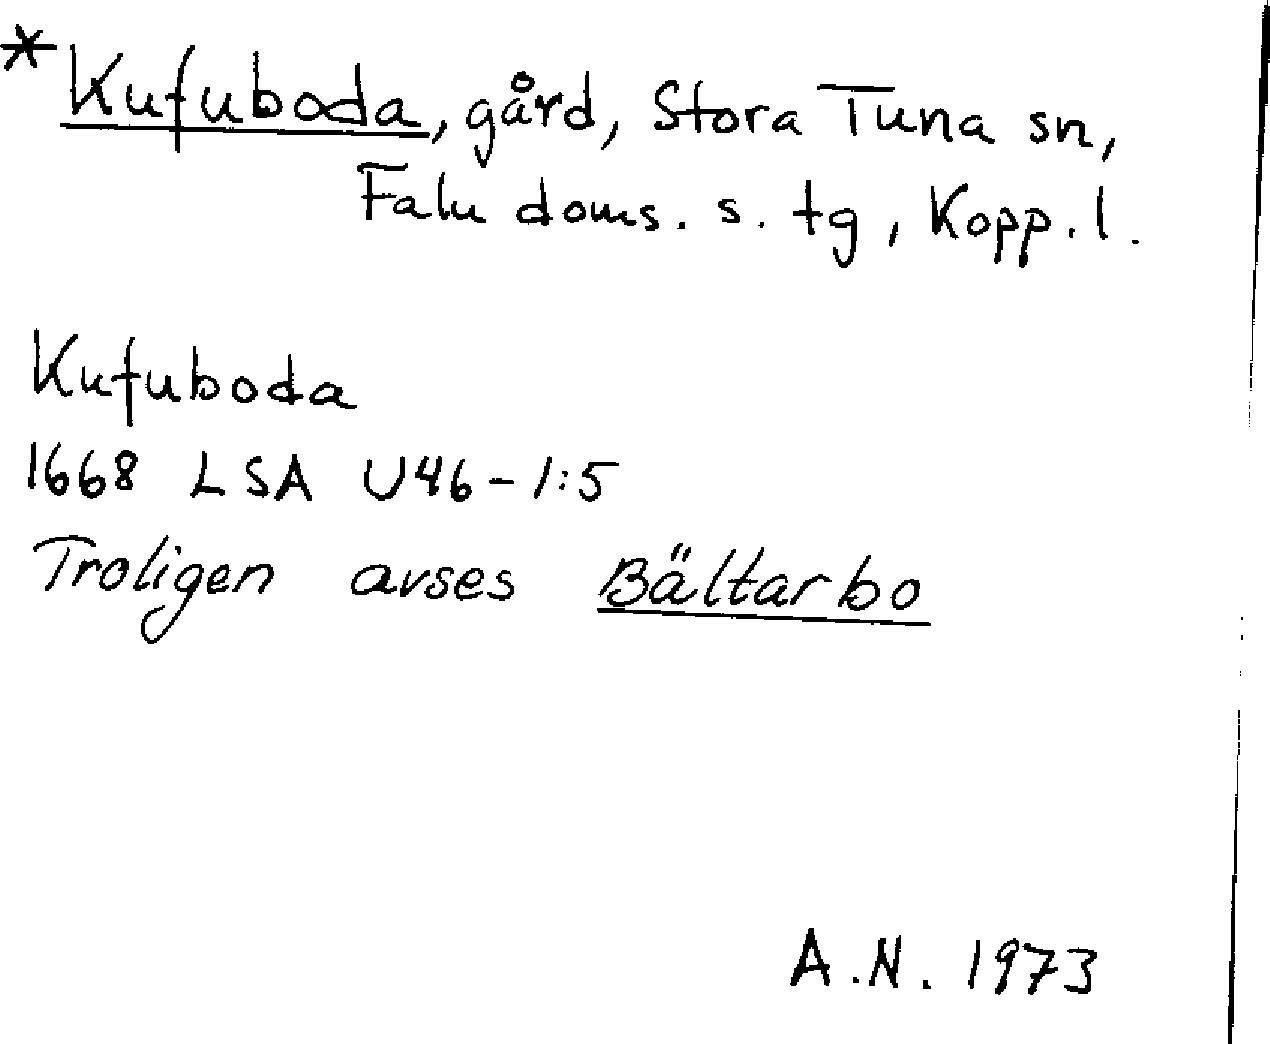 *Kufuboda, gård, Stora Tuna sn,
Falu doms. s. tg, Kopp. l.
Kufuboda
1668 LSA U46-1:5
Troligen avses Bältarbo
A.N. 1973